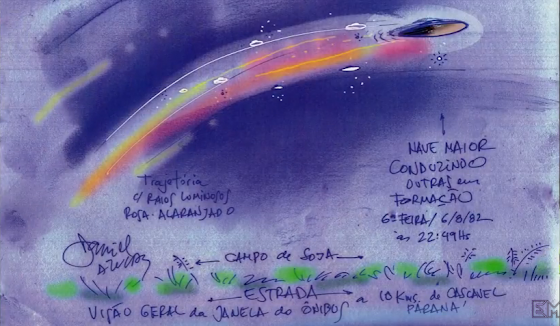 NAVE MAIOR
CONDUZINDO
OUTRAS em
FORMAÇÃO
6ª FEIRA/ 6/8/82
às 22:49Hs
Trajetória
c/ RAIOS LUMINOSOS
ROSA. ALARANJADO
CAMPO de SOJA
ESTRADA
VISÃO GERAL da JANELA do ÔNIBUS a 10 Kms. de CASCAVEL
PARANÁ